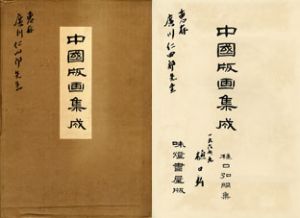 中國版画集成
惠存
廣川仁四郎先生
樋口弘編集
中國版画集成
樋口弘
味燈書屋版
惠存
廣川仁四郎先生